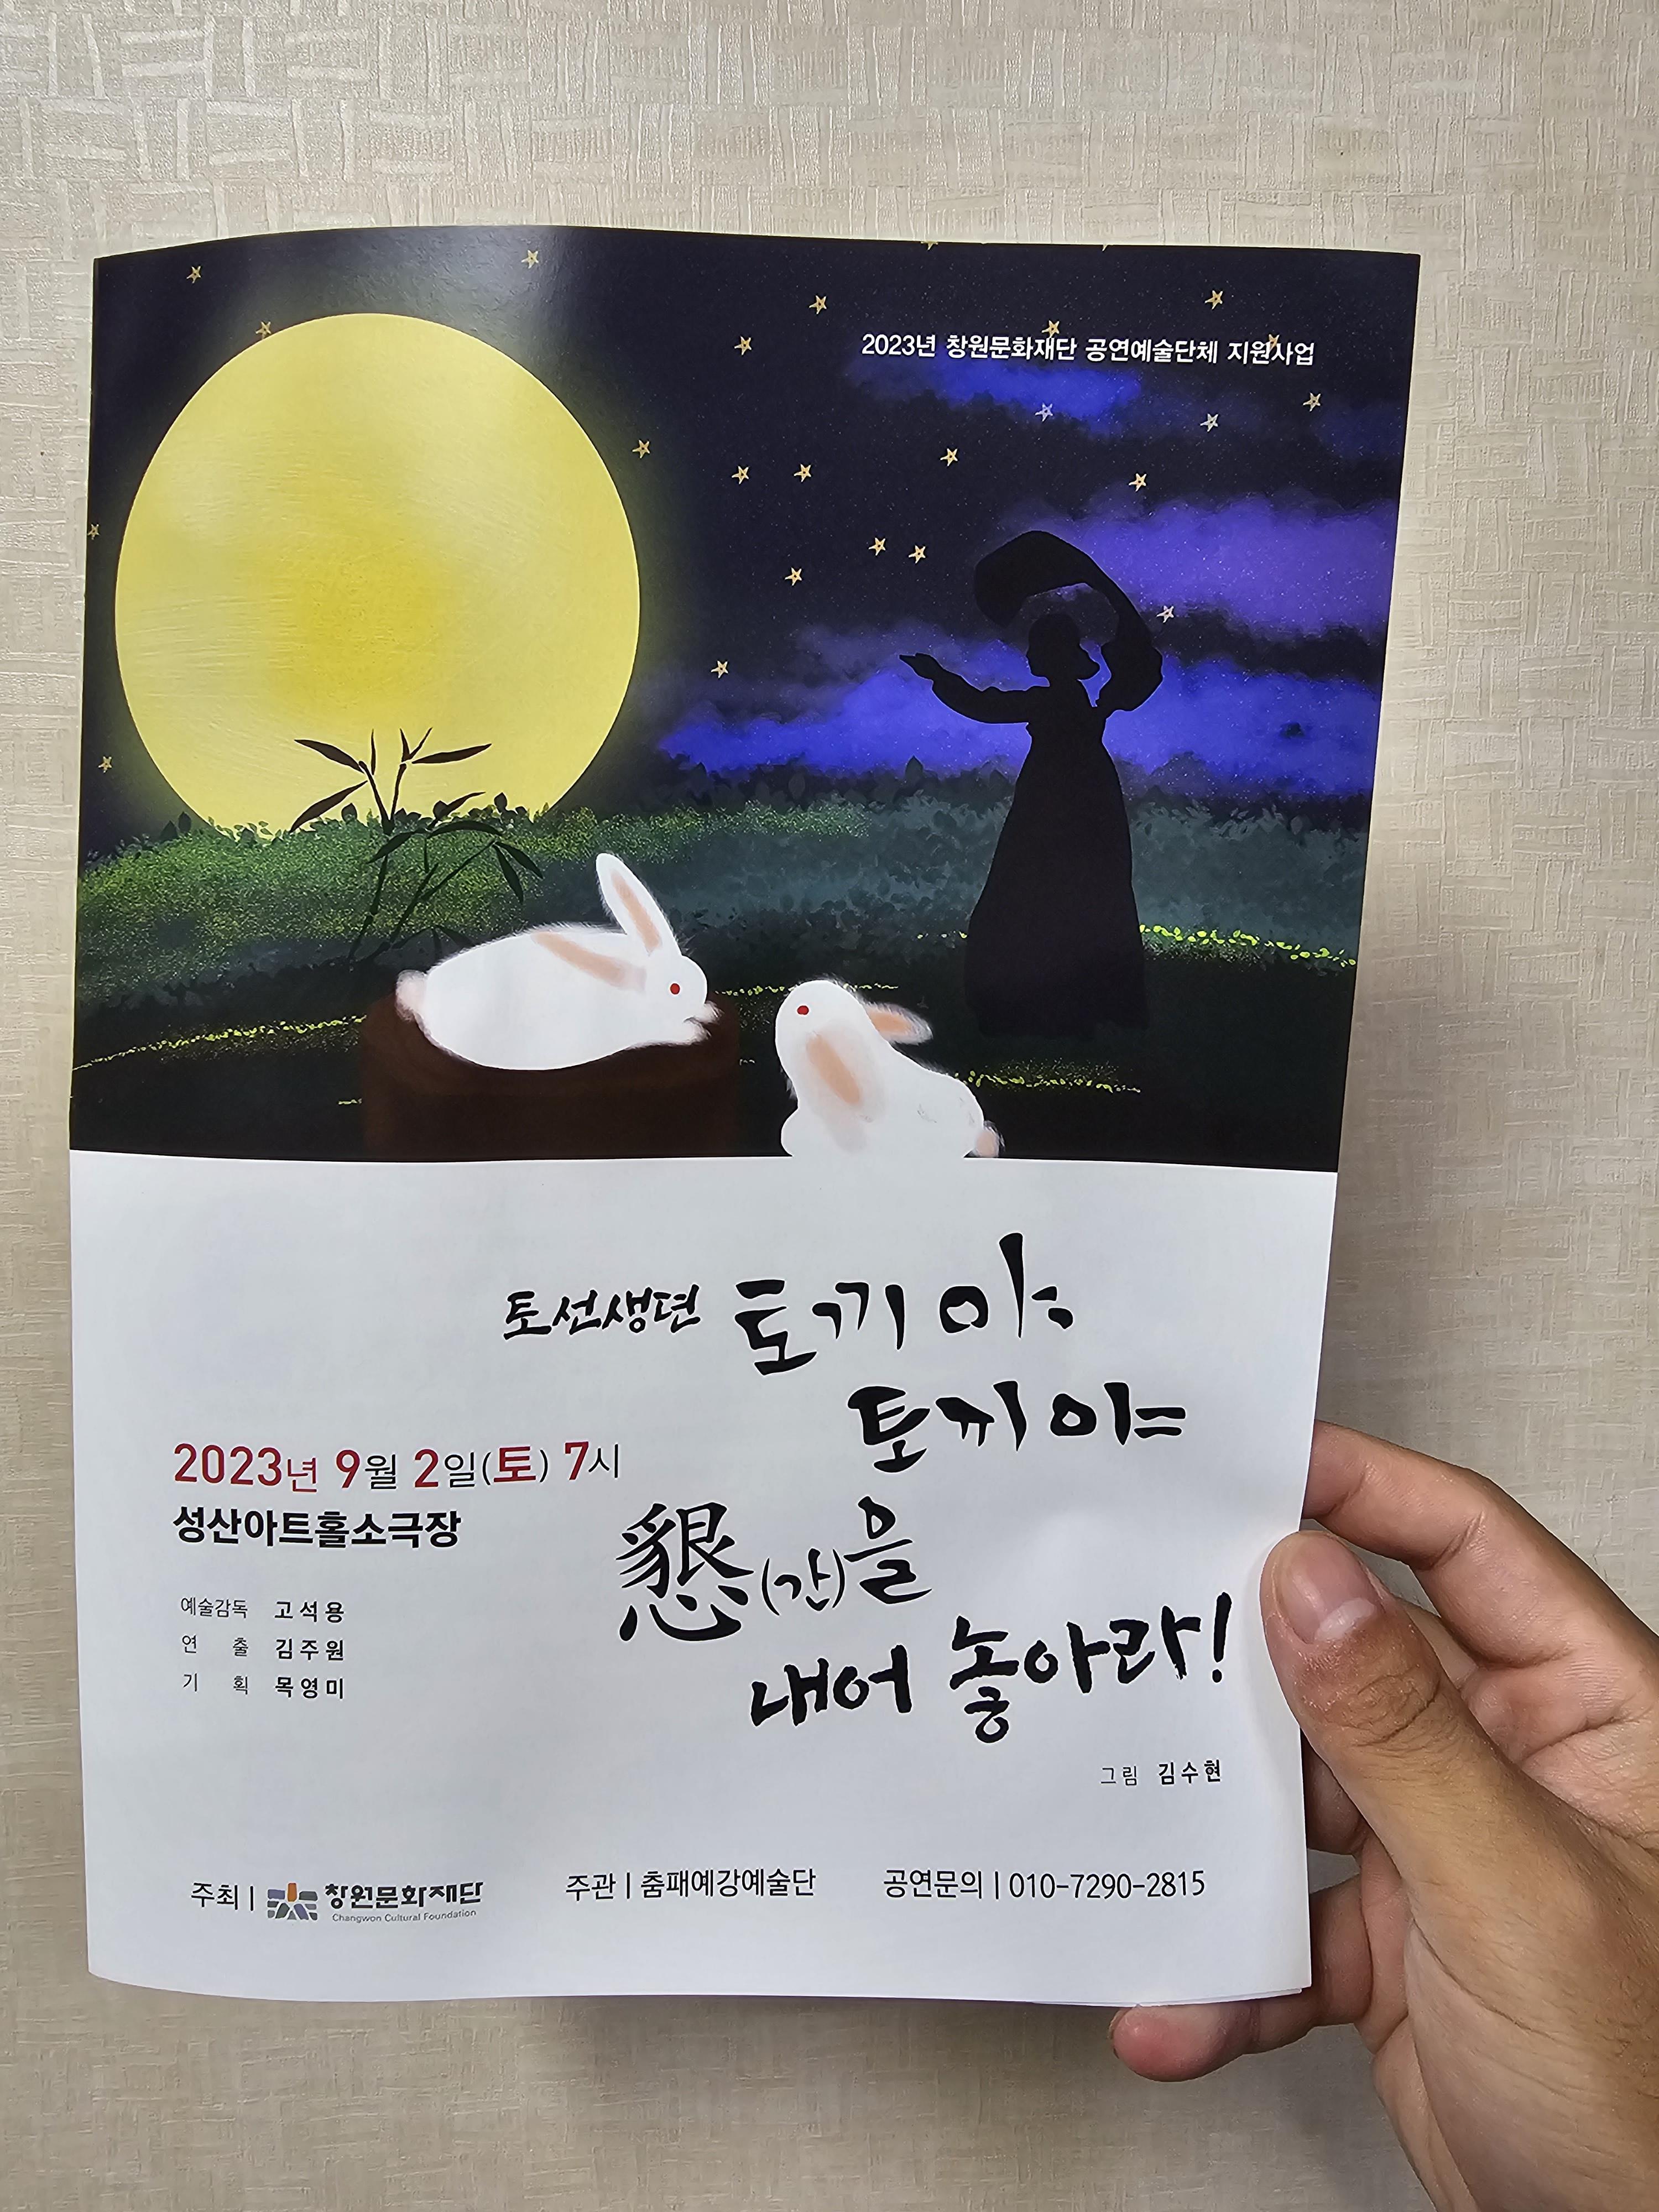 2023년 창원문화재단 공연예술단체 지원사업
토선생뎐 토끼야
토끼야
懇(간)을
내어 놓아라!
2023년 9월 2일(토) 7시
성산아트홀소극장
예술감독 고석용
연출 김주원
기획 목영미
그림 김수현
주최 | 창원문화재단
Changwon Cultural Foundation
주관 | 춤패예강예술단
공연문의 | 010-7290-2815